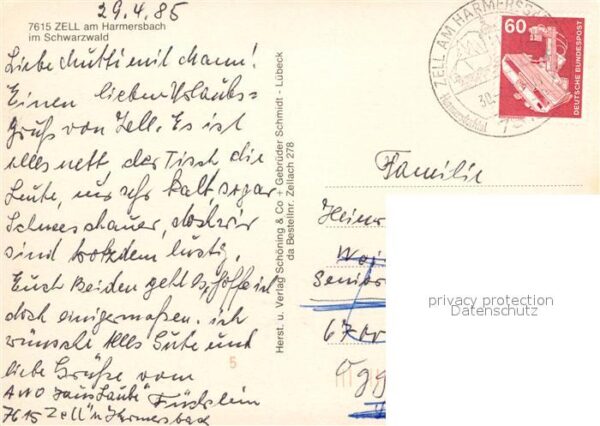 29.4.85
7615 ZELL am Harmersbach
im Schwarzwald
Liebe Mutti mit Mann!
Einen lieben Urlaubs=
gruß von Zell. Es ist
alles nett der Tisch die
Leute, nur sehr kalt, sogar
Schneeschauer, doch wir
sind trotzdem lustig.
Euch Beiden geht es, hoffe ich
doch einigermaßen. ich
wünsche Alles Gute und
liebe Grüße vom
AWO Haus Laube
7615 Zell a Harmersbach
5
Herst. u. Verlag Schöning & Co + Gebrüder Schmidt - Lübeck
da Bestellnr. Zellach 278
ZELL AM HARMERS
60
DEUTSCHE BUNDESPOST
Familie
Heinr
Senior
670
privacy protection
Datenschutz